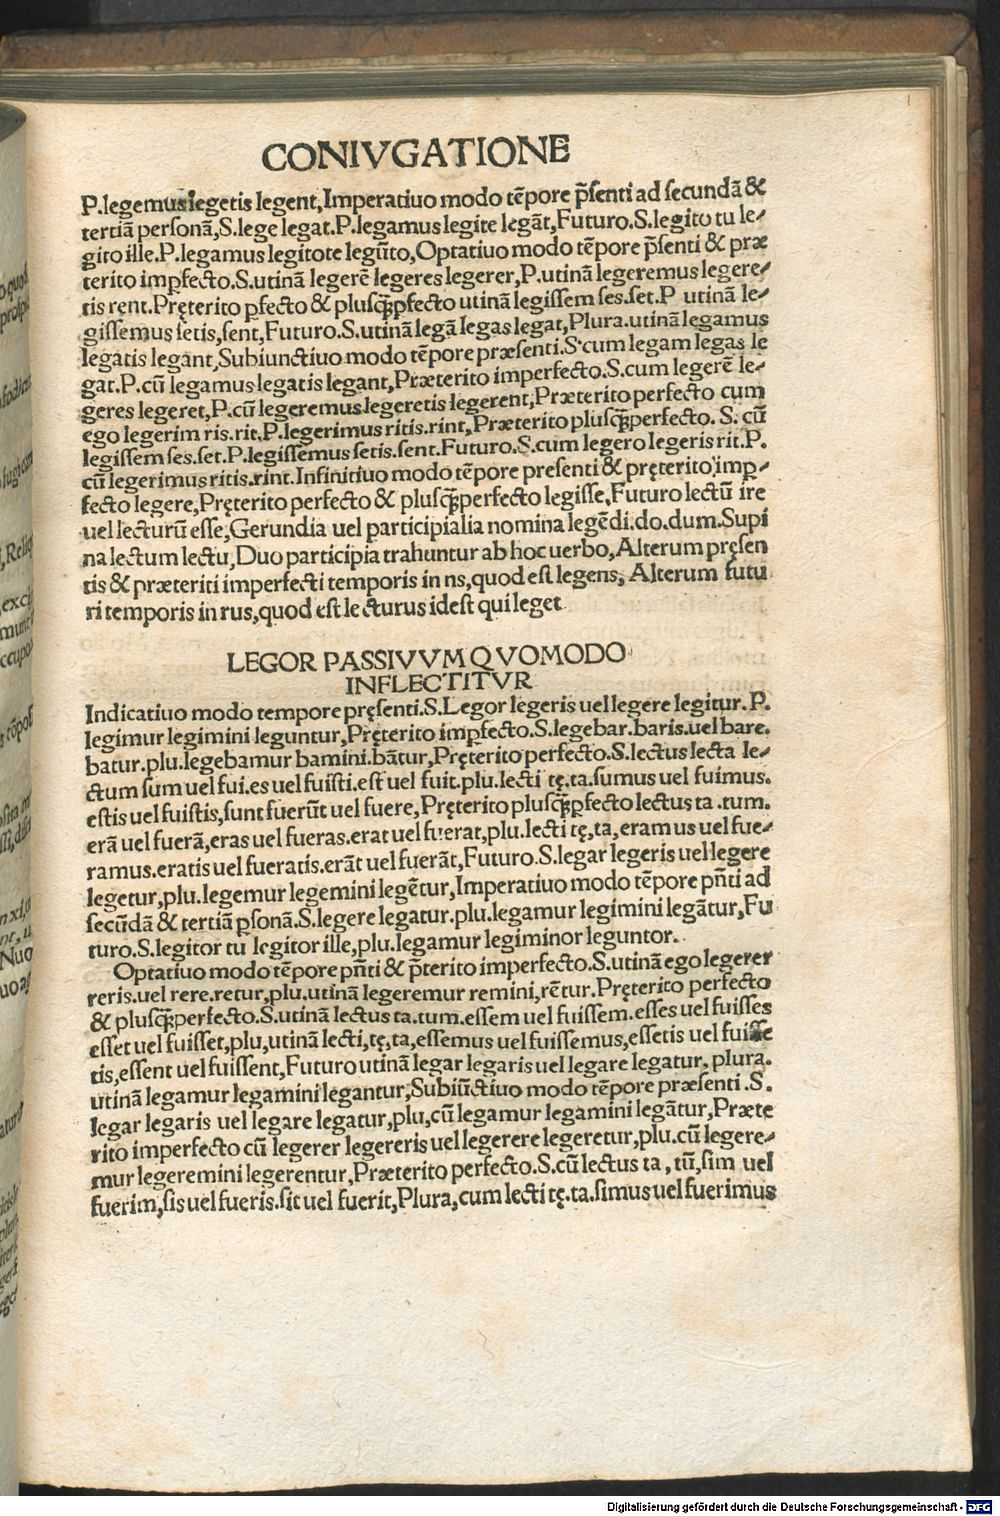 CONIVGATIONE
P.legemus legetis legent,Imperatiuo modo tēpore p̄senti ad secundā &
tertiā personā,S.lege legat.P.legamus legite legāt,Futuro.S.legito tu le-
gito ille.P.legamus legitote legūto,Optatiuo modo tēpore p̄senti & præ
terito imꝑfecto.S.utinā legerē legeres legerer,P.utinā legeremus legere-
tis rent.Pręterito ꝑfecto & plusq̄ꝑfecto utinā legissem ses.set.P utinā le-
gissemus setis,sent,Futuro.S.utinā legā legas legat,Plura.utinā legamus
legatis legant,Subiunctiuo modo tēpore præsenti.S.cum legam legas le
gat.P.cū legamus legatis legant,Præterito imperfecto.S.cum legerē le-
geres legeret,P.cū legeremus legeretis legerent,Præterito perfecto cum
ego legerim ris.rit.P.legerimus ritis.rint,Præterito plusq̄perfecto. S. cū
legissem ses.set.P.legissemus setis.sent.Futuro.S.cum legero legeris rit.P.
cū legerimus ritis.rint.Infinitiuo modo tēpore presenti & pręterito imꝑ-
fecto legere,Pręterito perfecto & plusq̄perfecto legisse,Futuro lectū ire
uel lecturū esse,Gerundia uel participialia nomina legēdi.do.dum.Supi
na lectum lectu,Duo participia trahuntur ab hoc uerbo,Alterum pręsen
tis & præteriti imperfecti temporis in ns,quod est legens, Alterum futu
ri temporis in rus,quod est lecturus idest qui leget
LEGOR PASSIVVM QVOMODO
INFLECTITVR
Indicatiuo modo tempore pręsenti.S.Legor legeris uel legere legitur. P.
legimur legimini leguntur,Pręterito imꝑfecto.S.legebar.baris.uel bare.
batur.plu.legebamur bamini.bātur,Pręterito perfecto.S.lectus lecta le-
ctum sum uel fui.es uel fuisti.est uel fuit.plu.lecti tę.ta.sumus uel fuimus.
estis uel fuistis,sunt fuerūt uel fuere,Pręterito plusq̄ꝑfecto lectus ta .tum.
erā uel fuerā,eras uel fueras.erat uel fuerat,plu.lecti tę,ta,eramus uel fue-
ramus.eratis uel fueratis.erāt uel fuerāt,Futuro.S.legar legeris uel legere
legetur,plu.legemur legemini legētur,Imperatiuo modo tēpore pn̄ti ad
secūdā & tertiā ꝑsonā.S.legere legatur.plu.legamur legimini legātur,Fu
turo.S.legitor tu legitor ille,plu.legamur legiminor leguntor.
Optatiuo modo tēpore pn̄ti & p̄terito imperfecto.S.utinā ego legerer
reris.uel rere.retur,plu.utinā legeremur remini,rētur.Pręterito perfecto
& plusq̄perfecto.S.utinā lectus ta.tum.essem uel fuissem.esses uel fuisses
esset uel fuisset,plu,utinā lecti,tę,ta,essemus uel fuissemus,essetis uel fuisse
tis,essent uel fuissent,Futuro utinā legar legaris uel legare legatur. plura.
utinā legamur legamini legantur,Subiūctiuo modo tēpore præsenti .S.
legar legaris uel legare legatur,plu,cū legamur legamini legātur,Præte
rito imperfecto cū legerer legereris uel legerere legeretur,plu.cū legere-
mur legeremini legerentur,Præterito perfecto.S.cū lectus ta, tū,sim uel
fuerim,sis uel fueris.sit uel fuerit,Plura,cum lecti tę.ta.simus uel fuerimus
Digitalisierung gefördert durch die Deutsche Forschungsgemeinschaft - DFG